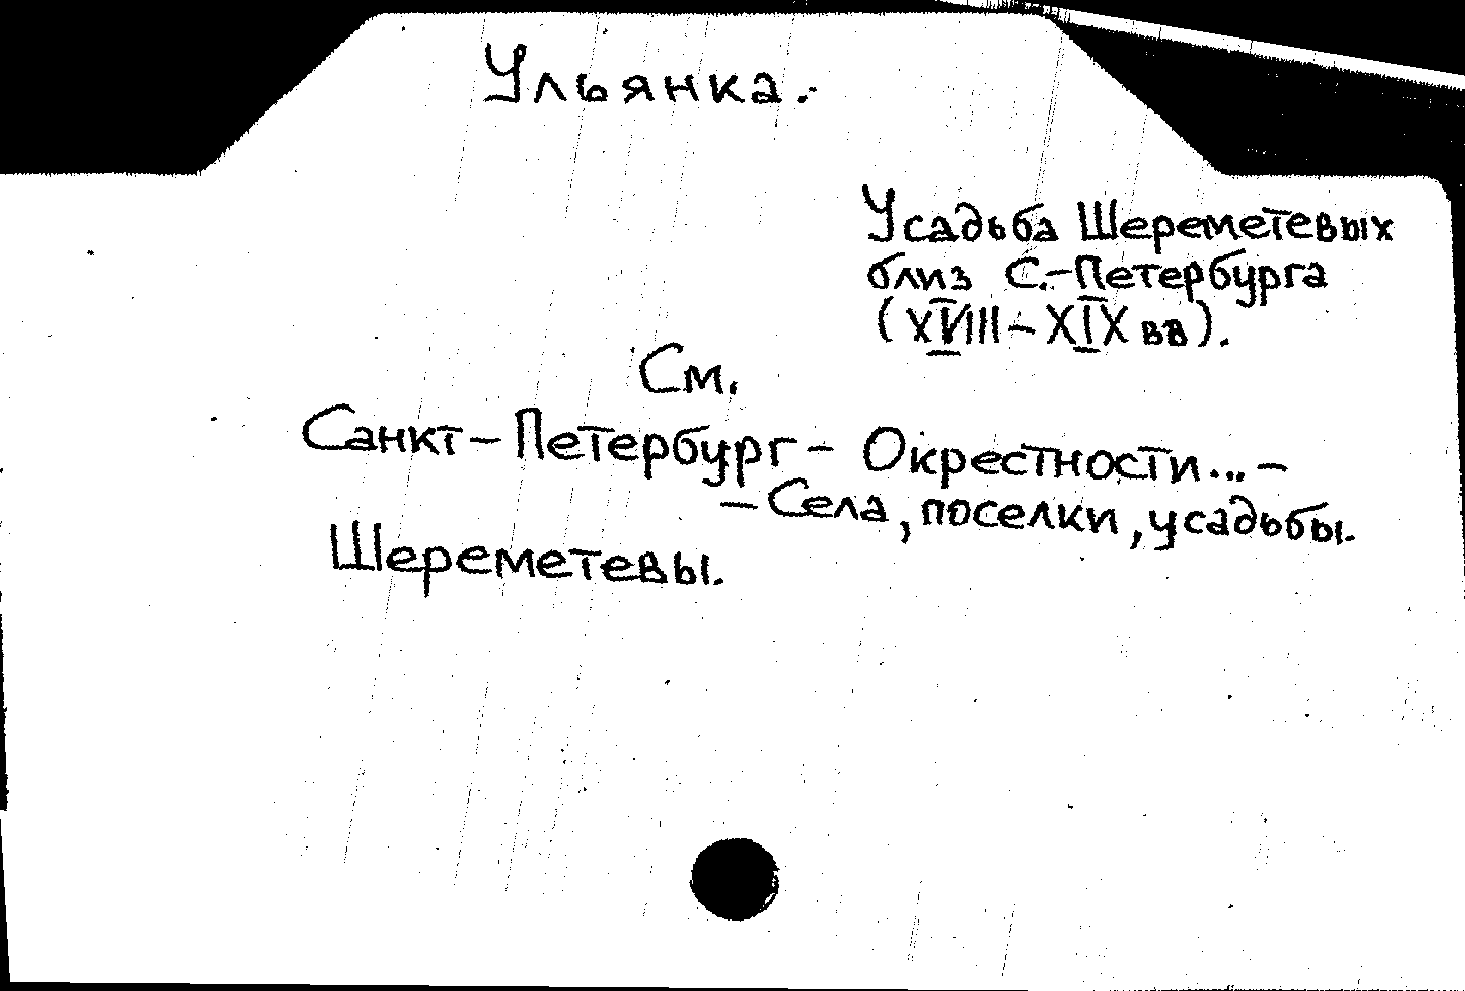 Ульянка.
Усадьба Шереметевых
близ С.-Петербурга
(XVIII – XIX вв).
См.
Санкт – Петербург – Окрестности... –
– Села, поселки, усадьбы.
Шереметевы.